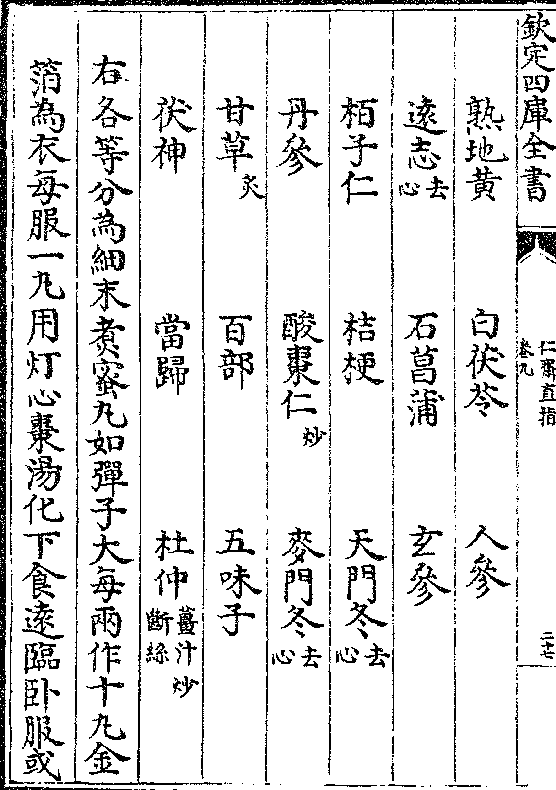 欽定四庫全書
仁齋直指
卷九
二十七
熟地黃 白茯苓 人參
遠志去心 石菖蒲 玄參
栢子仁 桔梗 天門冬去心
丹參 酸棗仁炒 麥門冬去心
甘草炙 百部 五味子
茯神 當歸 杜仲薑汁炒斷絲
右各等分為細末煮蜜丸如彈子大每兩作十丸金
箔為衣每服一丸用灯心棗湯化下食遠臨卧服或